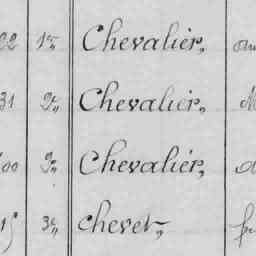 22 1e„ Chevalier„
31 2e„ Chevalier„ M
00 2e„ Chevalier„
15 3e„ Chevet„